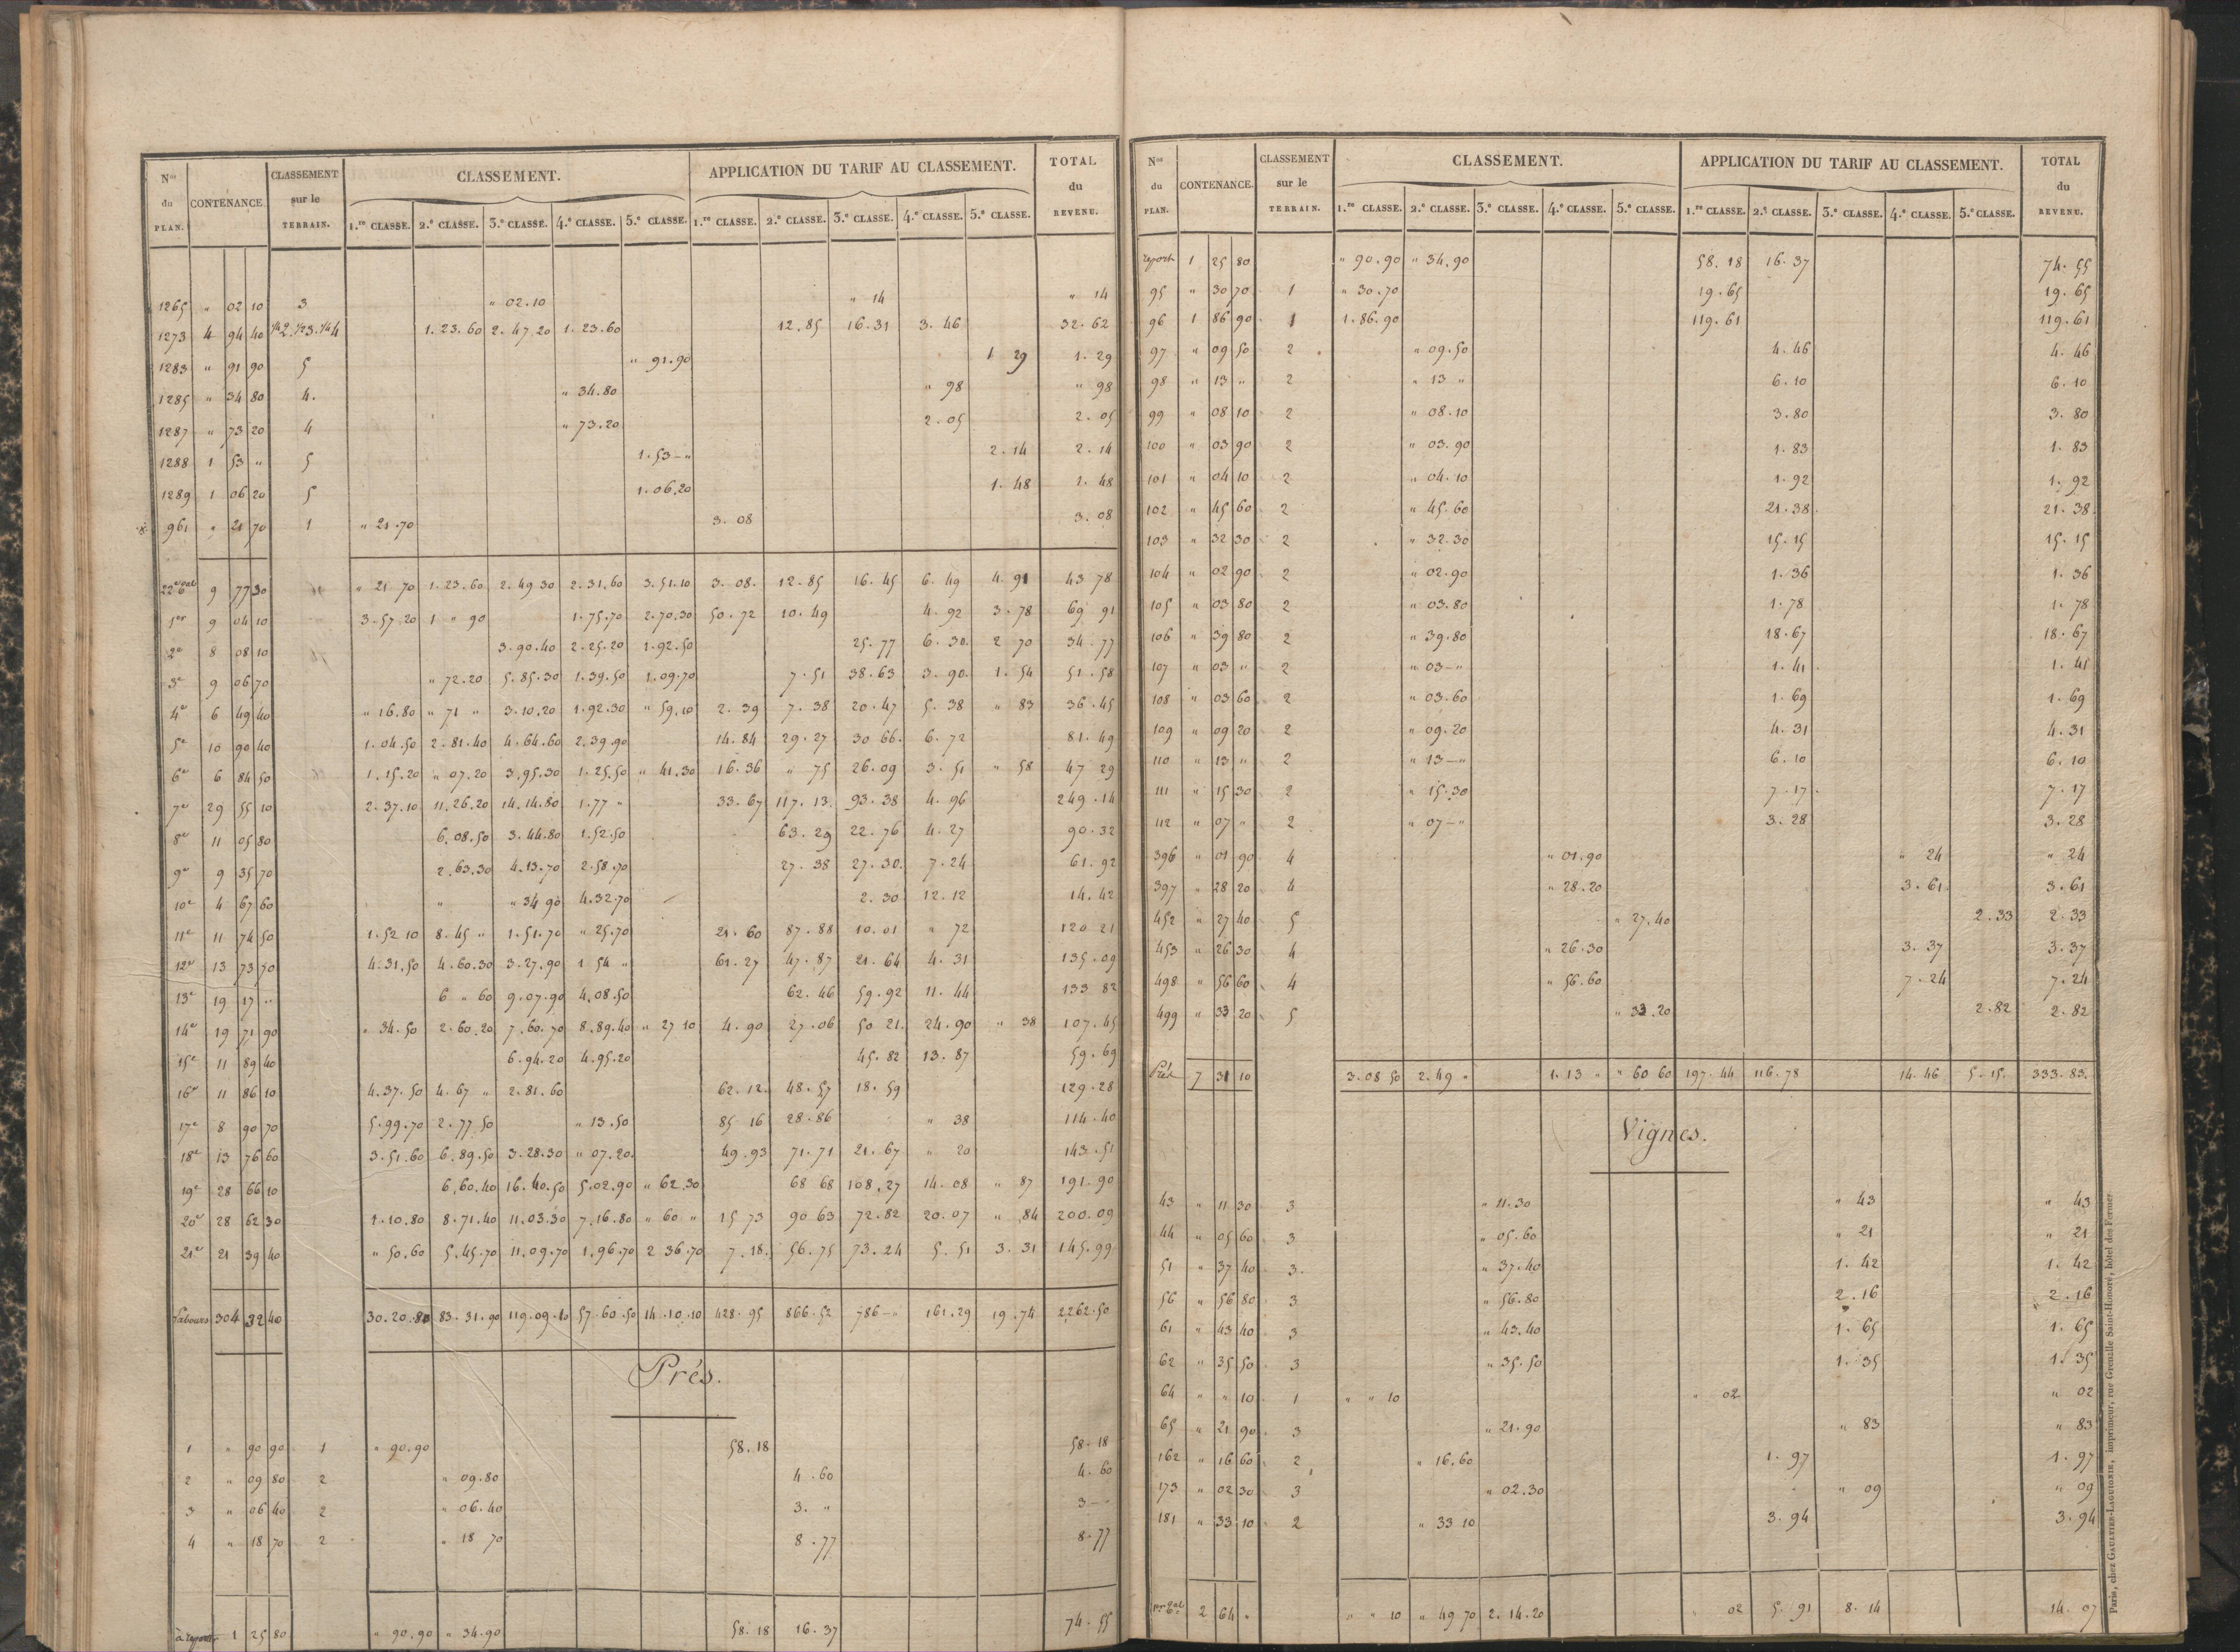 Nos du PLAN. CONTENANCE. CLASSEMENT sur le TERRAIN. CLASSEMENT. APPLICATION DU TARIF AU CLASSEMENT. TOTAL du REVENU.
1.re CLASSE. 2.e CLASSE. 3.e CLASSE. 4.e CLASSE. 5.e CLASSE. 1.re CLASSE. 2.e CLASSE. 3.e CLASSE. 4.e CLASSE. 5.e CLASSE.
1265 " 02 10 3 " 02.10 " 14 " 14
1273 4 94 40 1/4 2. 1/2 3. 1/4 4 1.23.60 2.47.20 1.23.60 12.85 16.31 3.46 32.62
1283 " 91 90 5 " 91.90 1 29 1.29
1285 " 34 80 4. " 34.80 " 98 " 98
1287 " 73 20 4 " 73.20 2.05 2.05
1288 1 53 " 5 1.53-" 2.14 2.14
1289 1 06 20 5 1.06.20 1.48 1.48
961 " 21 70 1 " 21.70 3.08 3.08
22e 9 77 30 " 21 70 1.23.60 2.49 30 2.31.60 3.51.10 3.08. 12.85 16.45 6.49 4.91 43 78
1er 9 04 10 3.57.20 1 " 90 1.75.70 2.70.30 50.72 10.49 4.92 3.78 69 91
2e 8 08 10 3.90.40 2.25.20 1.92.50 25.77 6.30. 2 70 34.77
3e 9 06 70 " 72.20 5.85.30 1.39.50 1.09.70 7.51 38.63 3.90. 1.54 51.58
4e 6 49 40 " 16.80 " 71 " 3.10.20 1.92.30 " 59.10 2.39 7.38 20.47 5.38 " 83 36.45
5e 10 90 40 1.04.50 2.81.40 4.64.60 2.39.90 14.84 29.27 30 66. 6.72 81.49
6e 6 84 50 1.15.20 " 07.20 3.95.30 1.25.50 " 41.30 16.36 " 75 26.09 3.51 " 58 47 29
7e 29 55 10 2.37.10 11.26.20 14.14.80 1.77 " 33.67 117.13. 93.38 4.96 249.14
8e 11 05 80 6.08.50 3.44.80 1.52.50 63.29 22.76 4.27 90.32
9e 9 35 70 2.63.30 4.13.70 2.58.70 27.38 27.30. 7.24 61.92
10e 4 67 60 " " 34 90 4.32.70 2.30 12.12 14.42
11e 11 74 50 1.52 10 8.45 " 1.51.70 " 25.70 21.60 87.88 10.01 " 72 120 21
12e 13 73 70 4.31.50 4.60.30 3.27.90 1 54 " 61.27 47.87 21.64 4.31 135.09
13e 19 17 " 6 " 60 9.07.90 4.08.50 62.46 59.92 11.44 133 82
14e 19 71 90 " 34.50 2.60.20 7.60.70 8.89.40 " 27 10 4.90 27.06 50 21. 24.90 " 38 107.45
15e 11 89 40 6.94.20 4.95.20 45.82 13.87 59.69
16e 11 86 10 4.37.50 4.67 " 2.81.60 62.12. 48.57 18.59 129.28
17e 8 90 70 5.99.70 2.77 50 " 13.50 85 16 28.86 " 38 114.40
18e 13 76 60 3.51.60 6.89.50 3.28.30 " 07.20. 49.93 71.71 21.67 " 20 143.51
19e 28 66 10 6.60.40 16.40.50 5.02.90 " 62.30 68 68 108.27 14.08 " 87 191.90
20e 28 62 30 1.10.80 8.71.40 11.03.30 7.16.80 " 60 " 15 73 90 63 72.82 20.07 " 84 200.09
21e 21 39 40 " 50.60 5.45.70 11.09.70 1.96.70 2 36.70 7.18. 56.75 73.24 5.51 3.31 145.99
Labours 304 32 40 30.20.80 83.31.90 119.09.10 57.60.50 14.10.10 428.95 866.52 786-" 161.29 19.74 2262.50
Prés.
1 " 90 90 1 " 90.90 58.18 58.18
2 " 09 80 2 " 09.80 4.60 4.60
3 " 06 40 2 " 06.40 3. " 3-"
4 " 18 70 2 " 18 70 8.77 8.77
à reporter 1 25 80 " 90.90 " 34.90 58.18 16.37 74.55
Nos du PLAN. CONTENANCE. CLASSEMENT sur le TERRAIN. CLASSEMENT. APPLICATION DU TARIF AU CLASSEMENT. TOTAL du REVENU.
1.re CLASSE. 2.e CLASSE. 3.e CLASSE. 4.e CLASSE. 5.e CLASSE. 1.re CLASSE. 2.e CLASSE. 3.e CLASSE. 4.e CLASSE. 5.e CLASSE.
report 1 25 80 " 90.90 " 34.90 58.18 16.37 74.55
95 " 30 70 1 " 30.70 19.65 19.65
96 1 86 90 1 1.86.90 119.61 119.61
97 " 09 50 2 " 09.50 4.46 4.46
98 " 13 " 2 " 13 " 6.10 6.10
99 " 08 10 2 " 08.10 3.80 3.80
100 " 03 90 2 " 03.90 1.83 1.83
101 " 04 10 2 " 04.10 1.92 1.92
102 " 45 60 2 " 45.60 21.38 21.38
103 " 32 30 2 " 32.30 15.15 15.15
104 " 02 90 2 " 02.90 1.36 1.36
105 " 03 80 2 " 03.80 1.78 1.78
106 " 39 80 2 " 39.80 18.67 18.67
107 " 03 " 2 " 03-" 1.41 1.41
108 " 03 60 2 " 03.60 1.69 1.69
109 " 09 20 2 " 09.20 4.31 4.31
110 " 13 " 2 " 13-" 6.10 6.10
111 " 15 30 2 " 15.30 7.17 7.17
112 " 07 " 2 " 07-" 3.28 3.28
396 " 01 90 4 " 01.90 " 24 " 24
397 " 28 20 4 " 28.20 3.61 3.61
452 " 27 40 5 " 27.40 2.33 2.33
453 " 26 30 4 " 26.30 3.37 3.37
498 " 56 60 4 " 56.60 7.24 7.24
499 " 33 20 5 " 33.20 2.82 2.82
Prés 7 31 10 3.08 50 2.49 " 1.13 " " 60 60 197.44 116.78 14.46 5.15. 333.83.
Vignes.
43 " 11 30 3 " 11.30 " 43 " 43
44 " 05 60 3 " 05.60 " 21 " 21
51 " 37 40 3. " 37.40 1.42 1.42
56 " 56 80 3 " 56.80 2.16 2.16
61 " 43 40 3 " 43.40 1.65 1.65
62 " 35 50 3 " 35.50 1.35 1.35
64 " " 10 1 " " 10 " 02 " 02
65 " 21 90 3 " 21.90 " 83 " 83
162 " 16 60 2 " 16.60 1.97 1.97
173 " 02 30 3 " 02.30 " 09 " 09
181 " 33 10 2 " 33 10 3.94 3.94
2 64 " " " 10 " 49 70 2.14.20 " 02 5.91 8.14 14.07
Paris, chez GAULTIER-LAGUIONIE, imprimeur, rue Grenelle Saint-Honoré, hôtel des Fermes